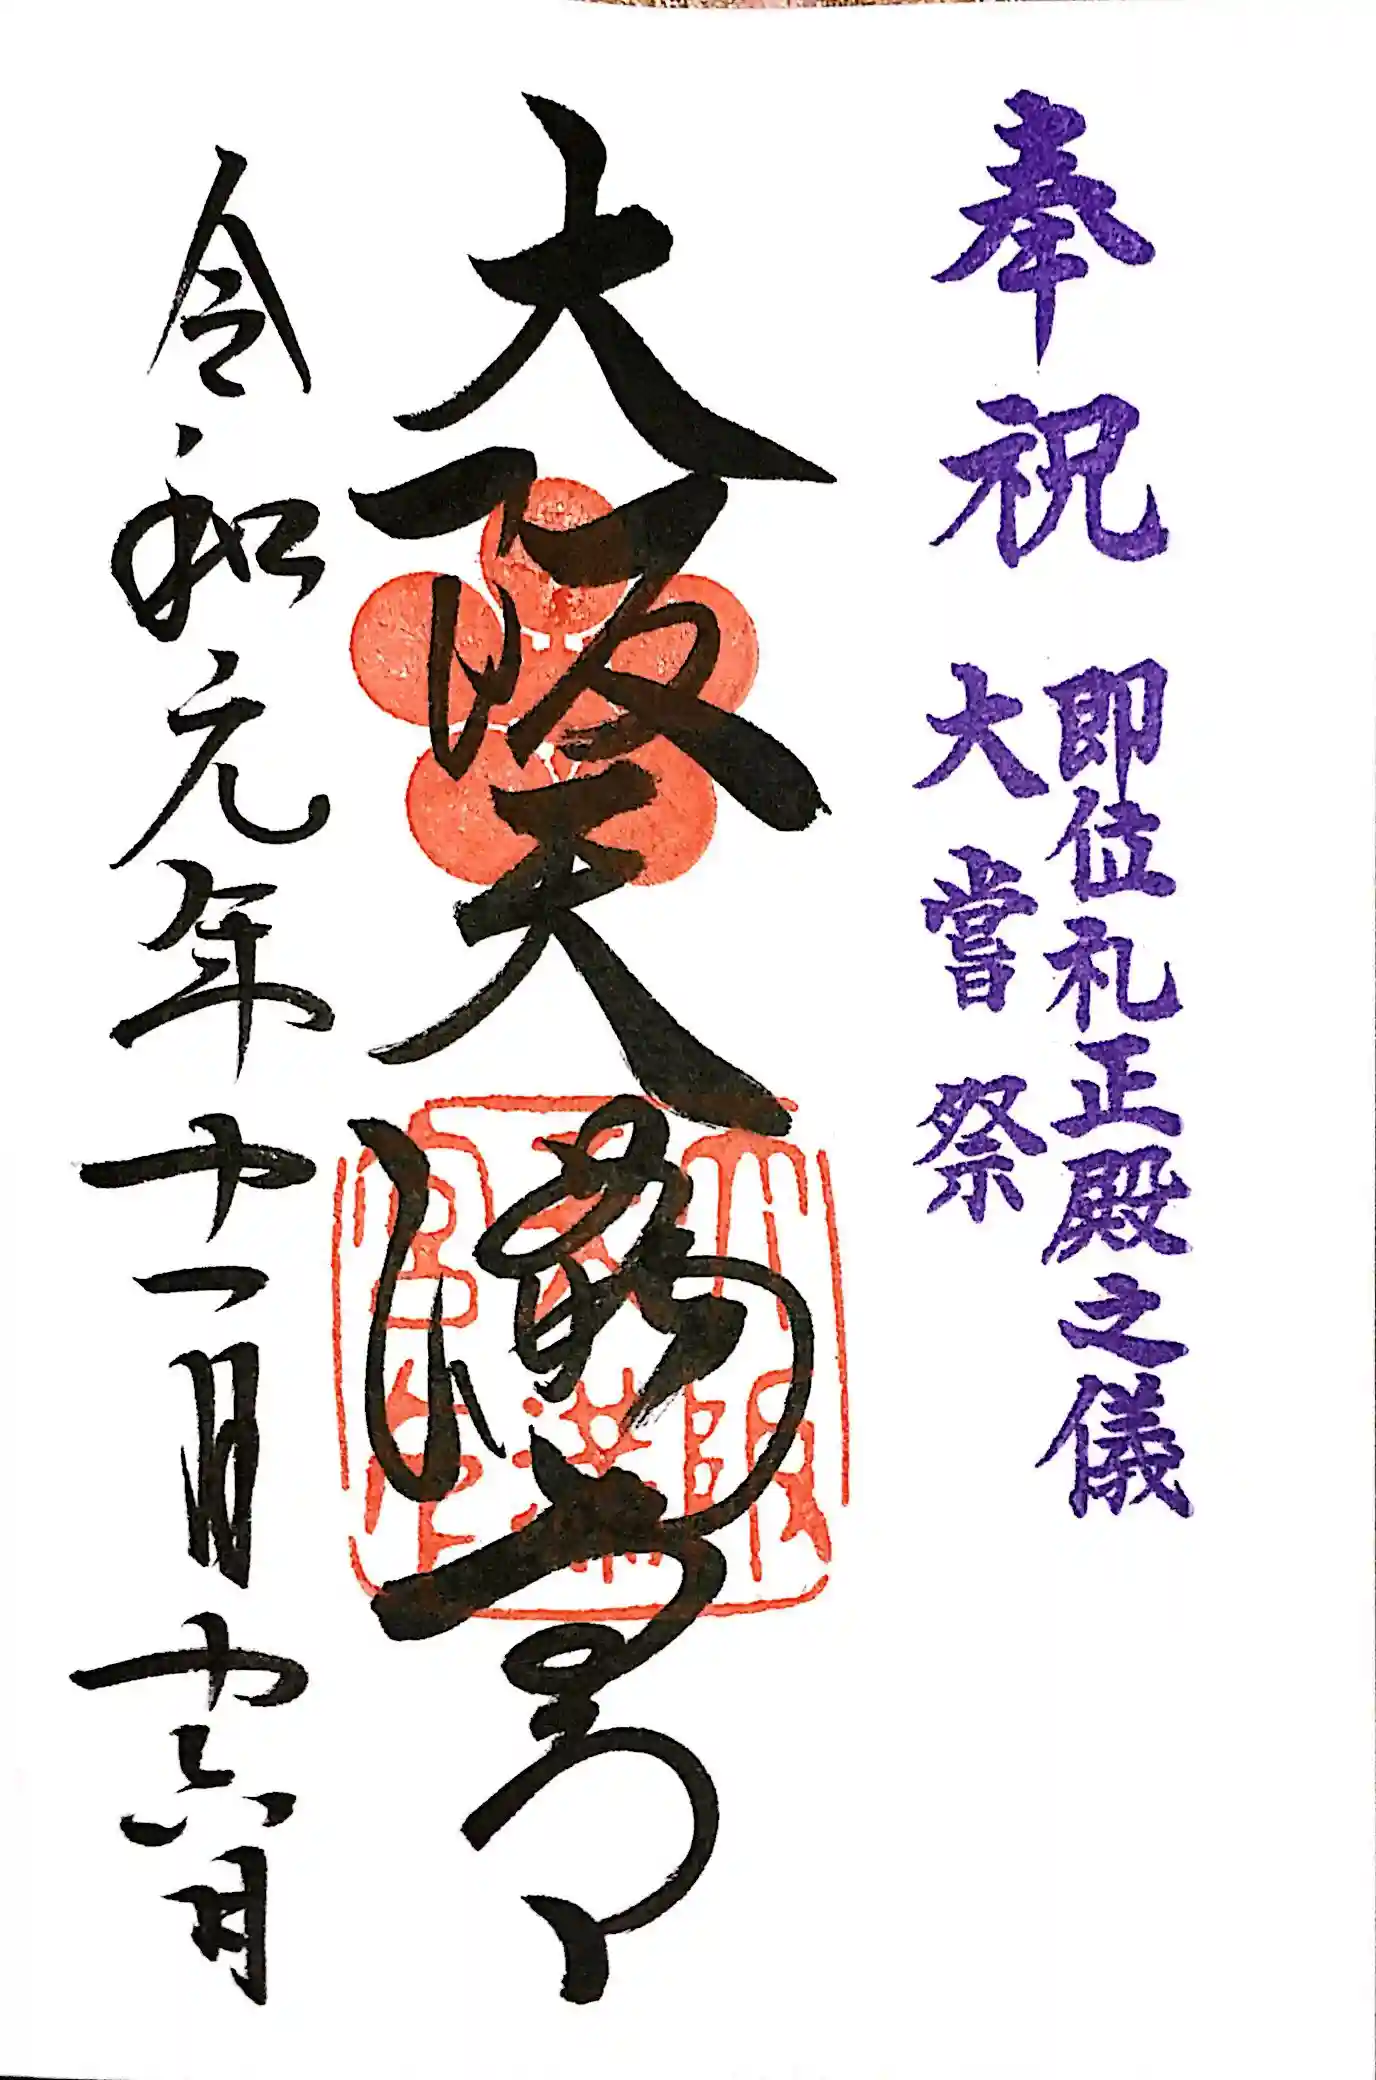 奉祝
即位礼正殿之儀
大嘗祭
大阪天満宮
大阪天満宮
令和元年十一月十六日